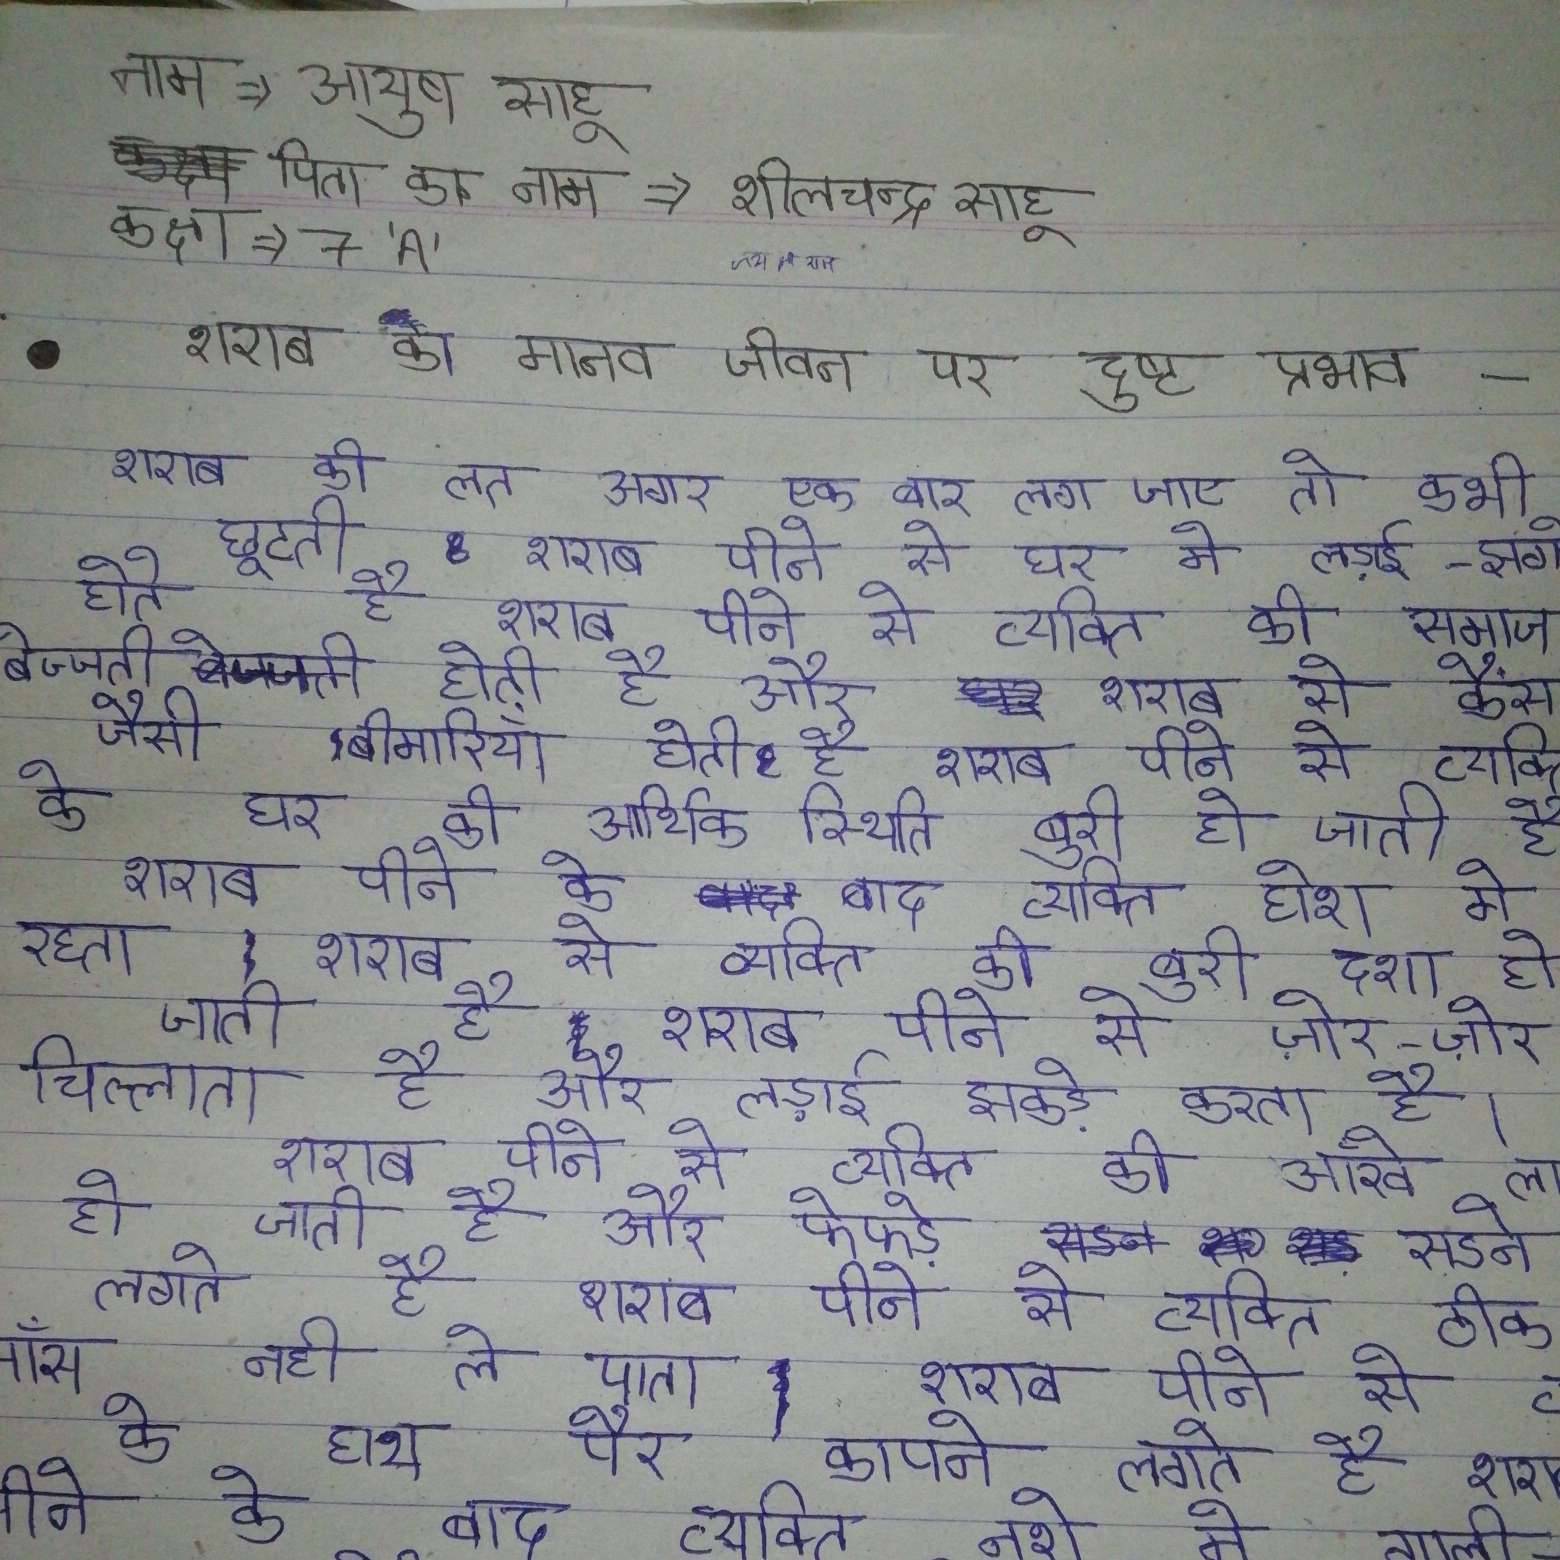 नाम ⇒ आयुष साहू
पिता का नाम ⇒ शीलचन्द्र साहू
कक्षा ⇒ 7 'A'
• शराब का मानव जीवन पर दुष्ट प्रभाव –
शराब की लत अगर एक बार लग जाए तो कभी
छूटती शराब पीने से घर मे लड़ाई -झग
होते है शराब पीने से व्यक्ति की समाज
बेज्जती होती है और शराब से कैंस
जैसी बीमारियाँ होती है शराब पीने से व्यक्ति
के घर की आर्थिक स्थिति बुरी हो जाती है
शराब पीने के बाद व्यक्ति होश मे
रहता । शराब से व्यक्ति की बुरी दशा हो
जाती है । शराब पीने से ज़ोर-ज़ोर
चिल्लाता है और लड़ाई झकड़े करता है ।
शराब पीने से व्यक्ति की आँखे ला
हो जाती है और फेफड़े सडने
लगते है शराब पीने से व्यक्ति ठीक
साँस नही ले पाता । शराब पीने से
के हाथ पैर कापने लगते है शरा
पीने के बाद व्यक्ति नशे मे गाली-